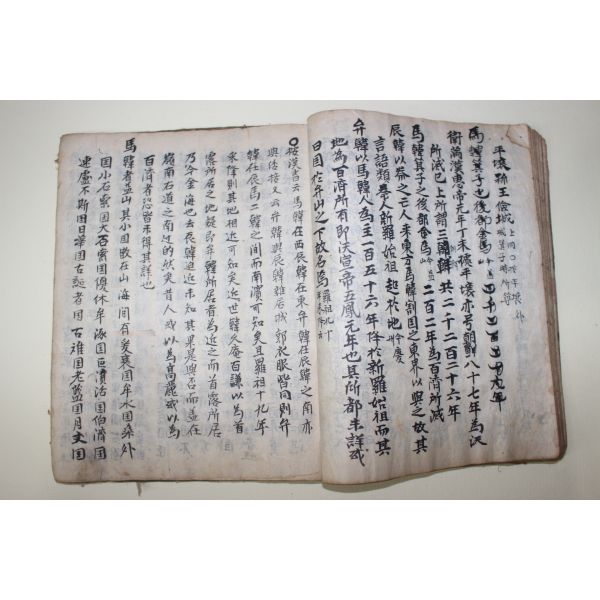 平壤孫王儉城
馬韓箕子之後都金馬
衛滿漢惠帝元年丁未壞平壤亦号朝鮮八十七年為漢
所滅已上所謂三韓韓共二千二百二十六年
馬韓箕子之後都金馬山 二百二年為百濟所滅
辰韓以秦之亡人来東方馬韓割國之東界以與之故其
言語類秦人新羅始祖起於地 慶
弁韓以馬韓人為主一百五十六年降於新羅始祖而其
地為百濟所有即漢宣帝五鳳元年也其所都未詳或
曰國於弁山之下故名焉
○按漢書云馬韓在西辰韓在東弁韓在辰韓之南亦
與倭接又云弁韓與辰韓雜居城郭衣服皆同則弁
韓在辰馬二韓之間而南濱可知矣且羅祖十九年
来降則其地相近可知矣近世韓久庵百謙以為首
露所居之地疑即弁韓所居者為近之而首露所居
乃今金海也去辰韓迫近未知其果是與否而盖在
嶺南右道之南辺的然矣昔人或以為高麗或以為
百濟者恐皆未得其詳也
馬韓者並山其小國散在山海間有爰襄国牟水国桑外
国小石索国大石索国優休牟涿国臣濆沽国伯濟国
速盧不斯国日華国古誕者国古離国老藍国月支国